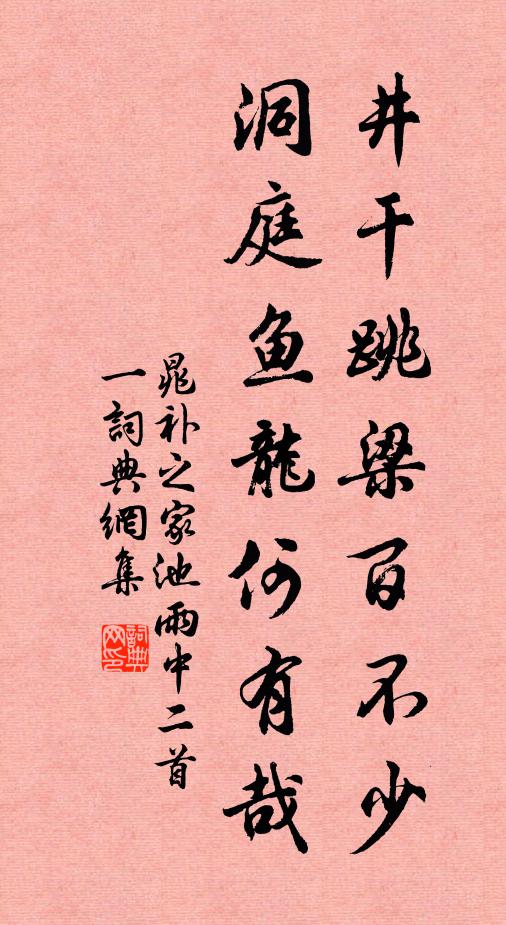 井干跳梁百不少
洞庭鱼龍何有哉
晁补之家池雨中二首
一詞典網集
詞典网印